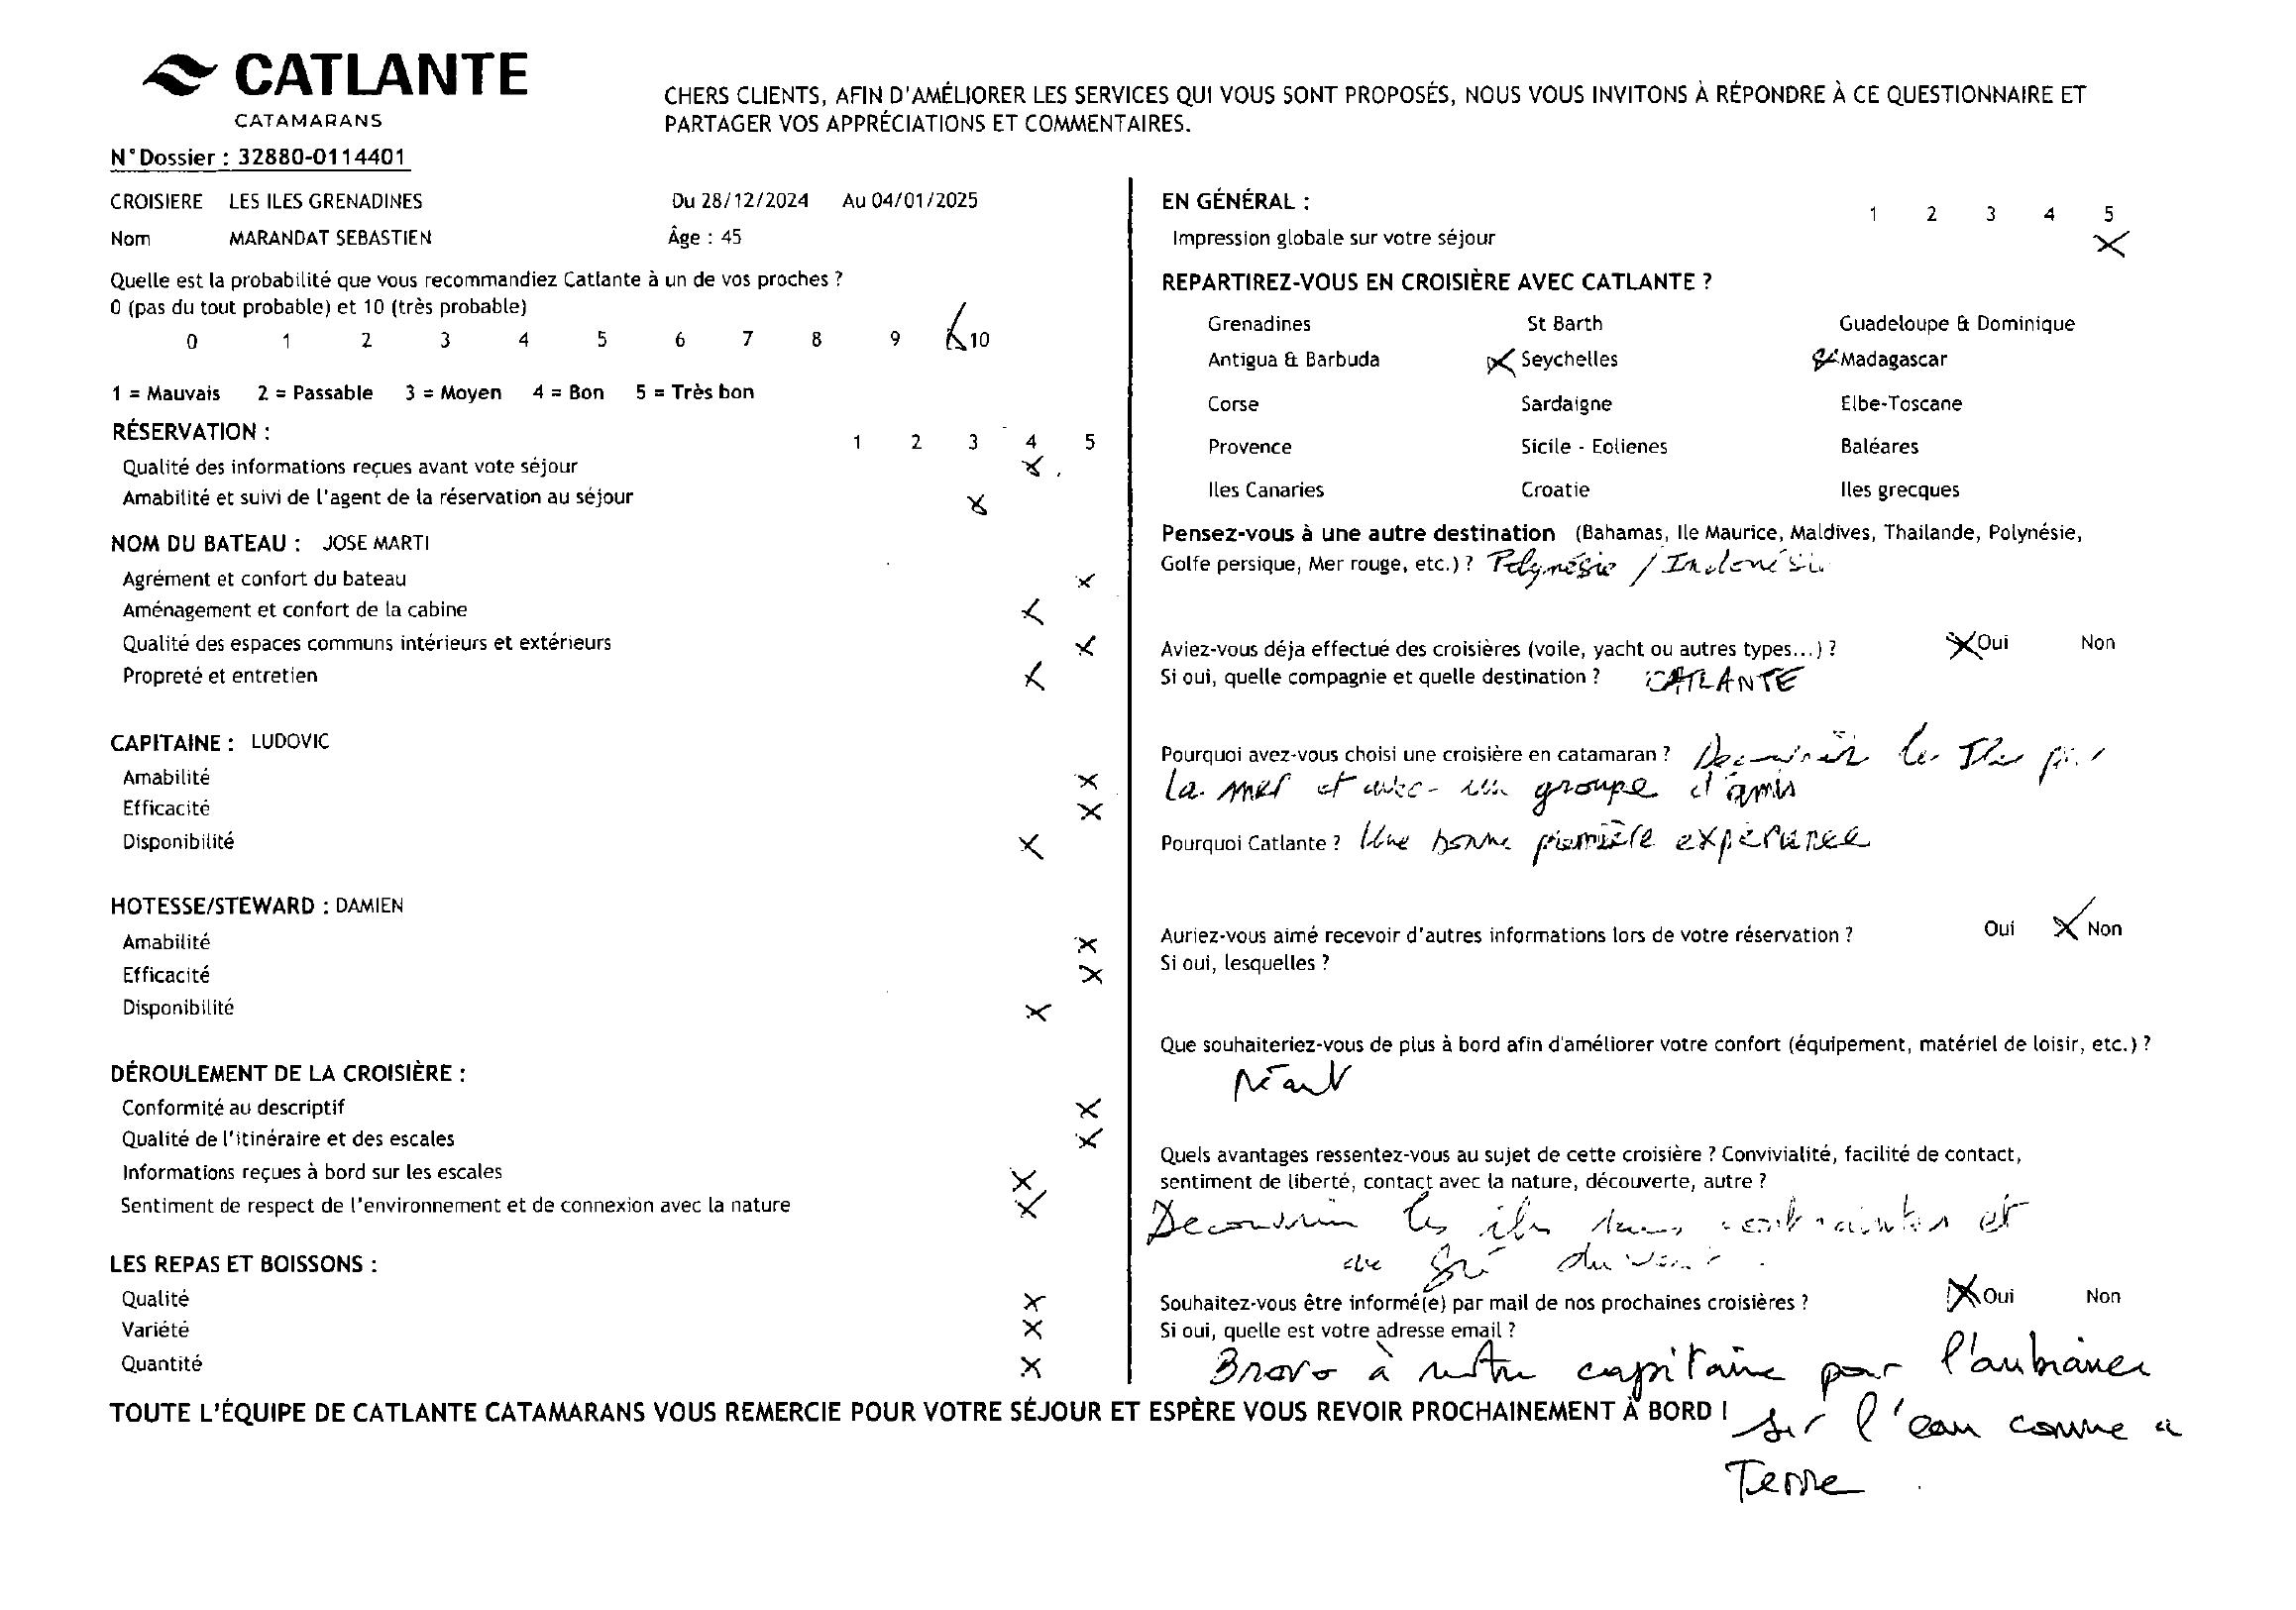 CATLANTE
CATAMARANS
N°Dossier : 32880-0114401
CHERS CLIENTS, AFIN D'AMÉLIORER LES SERVICES QUI VOUS SONT PROPOSÉS, NOUS VOUS INVITONS À RÉPONDRE À CE QUESTIONNAIRE ET
PARTAGER VOS APPRÉCIATIONS ET COMMENTAIRES.
CROISIERE LES ILES GRENADINES Du 28/12/2024 Au 04/01/2025
Nom MARANDAT SEBASTIEN Âge : 45
Quelle est la probabilité que vous recommandiez Catlante à un de vos proches ?
0 (pas du tout probable) et 10 (très probable)
0 1 2 3 4 5 6 7 8 9 10
1 = Mauvais 2 = Passable 3 = Moyen 4 = Bon 5 = Très bon
RÉSERVATION :
1 2 3 4 5
Qualité des informations reçues avant vote séjour
Amabilité et suivi de l'agent de la réservation au séjour
NOM DU BATEAU : JOSE MARTI
Agrément et confort du bateau
Aménagement et confort de la cabine
Qualité des espaces communs intérieurs et extérieurs
Propreté et entretien
CAPITAINE : LUDOVIC
Amabilité
Efficacité
Disponibilité
HOTESSE/STEWARD : DAMIEN
Amabilité
Efficacité
Disponibilité
DÉROULEMENT DE LA CROISIÈRE :
Conformité au descriptif
Qualité de l'itinéraire et des escales
Informations reçues à bord sur les escales
Sentiment de respect de l'environnement et de connexion avec la nature
LES REPAS ET BOISSONS :
Qualité
Variété
Quantité
EN GÉNÉRAL :
1 2 3 4 5
Impression globale sur votre séjour
REPARTIREZ-VOUS EN CROISIÈRE AVEC CATLANTE ?
Grenadines St Barth Guadeloupe & Dominique
Antigua & Barbuda Seychelles Madagascar
Corse Sardaigne Elbe-Toscane
Provence Sicile - Eoliennes Baléares
Iles Canaries Croatie Iles grecques
Pensez-vous à une autre destination (Bahamas, Ile Maurice, Maldives, Thailande, Polynésie,
Golfe persique, Mer rouge, etc.) ? Polynésie / Indonésie
Aviez-vous déja effectué des croisières (voile, yacht ou autres types...) ? Oui Non
Si oui, quelle compagnie et quelle destination ? CATLANTE
Pourquoi avez-vous choisi une croisière en catamaran ? Decouvrir les Iles par
la mer et avec un groupe d'amis
Pourquoi Catlante ? Une bonne première expérience
Auriez-vous aimé recevoir d'autres informations lors de votre réservation ? Oui Non
Si oui, lesquelles ?
Que souhaiteriez-vous de plus à bord afin d'améliorer votre confort (équipement, matériel de loisir, etc.) ?
Néant
Quels avantages ressentez-vous au sujet de cette croisière ? Convivialité, facilité de contact,
sentiment de liberté, contact avec la nature, découverte, autre ?
Decouvrir les iles sans contraintes et
au gré du vent.
Souhaitez-vous être informé(e) par mail de nos prochaines croisières ? Oui Non
Si oui, quelle est votre adresse email ?
Bravo à notre capitaine pour l'ambiance
sur l'eau comme a
Terre.
TOUTE L'ÉQUIPE DE CATLANTE CATAMARANS VOUS REMERCIE POUR VOTRE SÉJOUR ET ESPÈRE VOUS REVOIR PROCHAINEMENT À BORD !